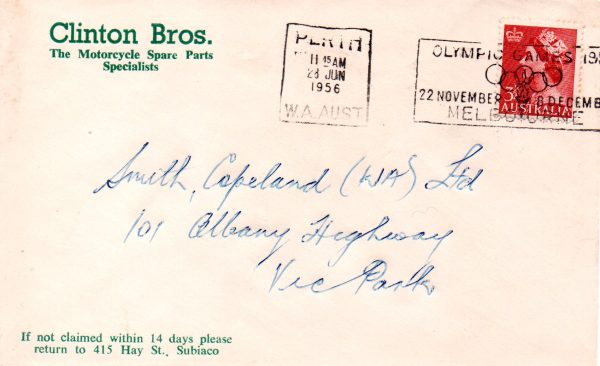 Clinton Bros.
The Motorcycle Spare Parts
Specialists
PERTH
11 45AM
28 JUN
1956
W.A. AUST
OLYMPIC GAMES 195
22 NOVEMBER 8 DECEMB
MELBOURNE
3D
AUSTRALIA
Smith, Copeland (WA) Ltd
101 Albany Highway
Vic Park.
If not claimed within 14 days please
return to 415 Hay St., Subiaco